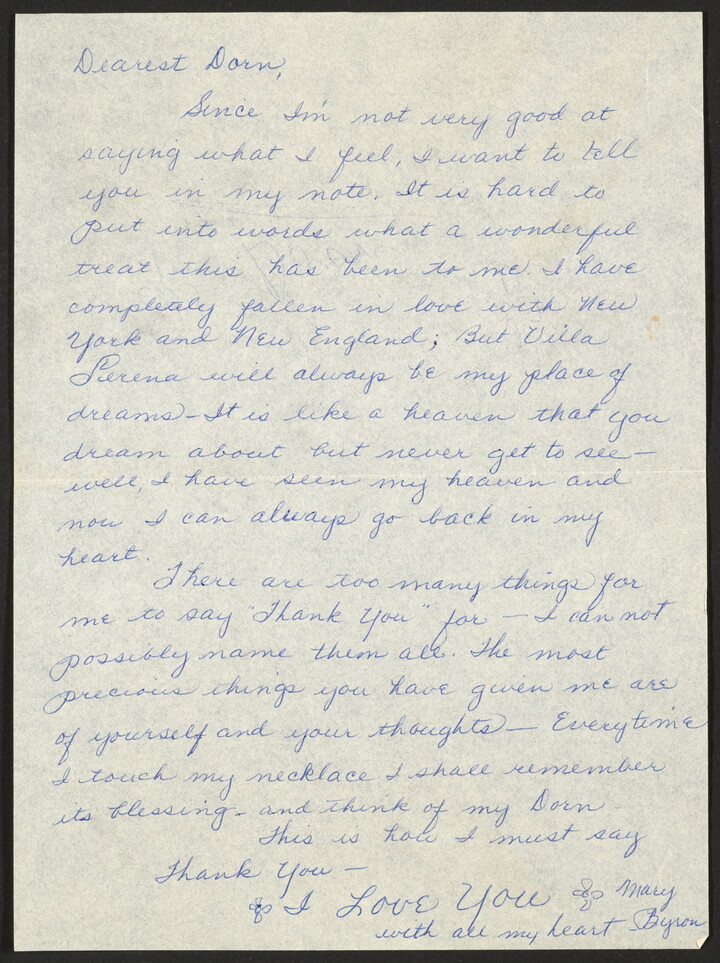 Dearest Dorn,
Since I'm not very good at
saying what I feel, I want to tell
you in my note. It is hard to
put into words what a wonderful
treat this has been to me. I have
completely fallen in love with New
York and New England; But Villa
Serena will always be my place of
dreams - It is like a heaven that you
dream about but never get to see -
well, I have seen my heaven and
now I can always go back in my
heart.
There are too many things for
me to say "Thank You" for - I can not
possibly name them all. The most
precious things you have given me are
of yourself and your thoughts - Everytime
I touch my necklace I shall remember
its blessing - and think of my Dorn -
This is how I must say
Thank You -
I Love You Mary
with all my heart Byron